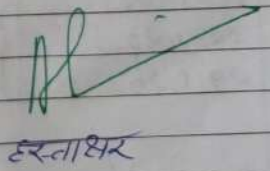 हस्ताक्षर